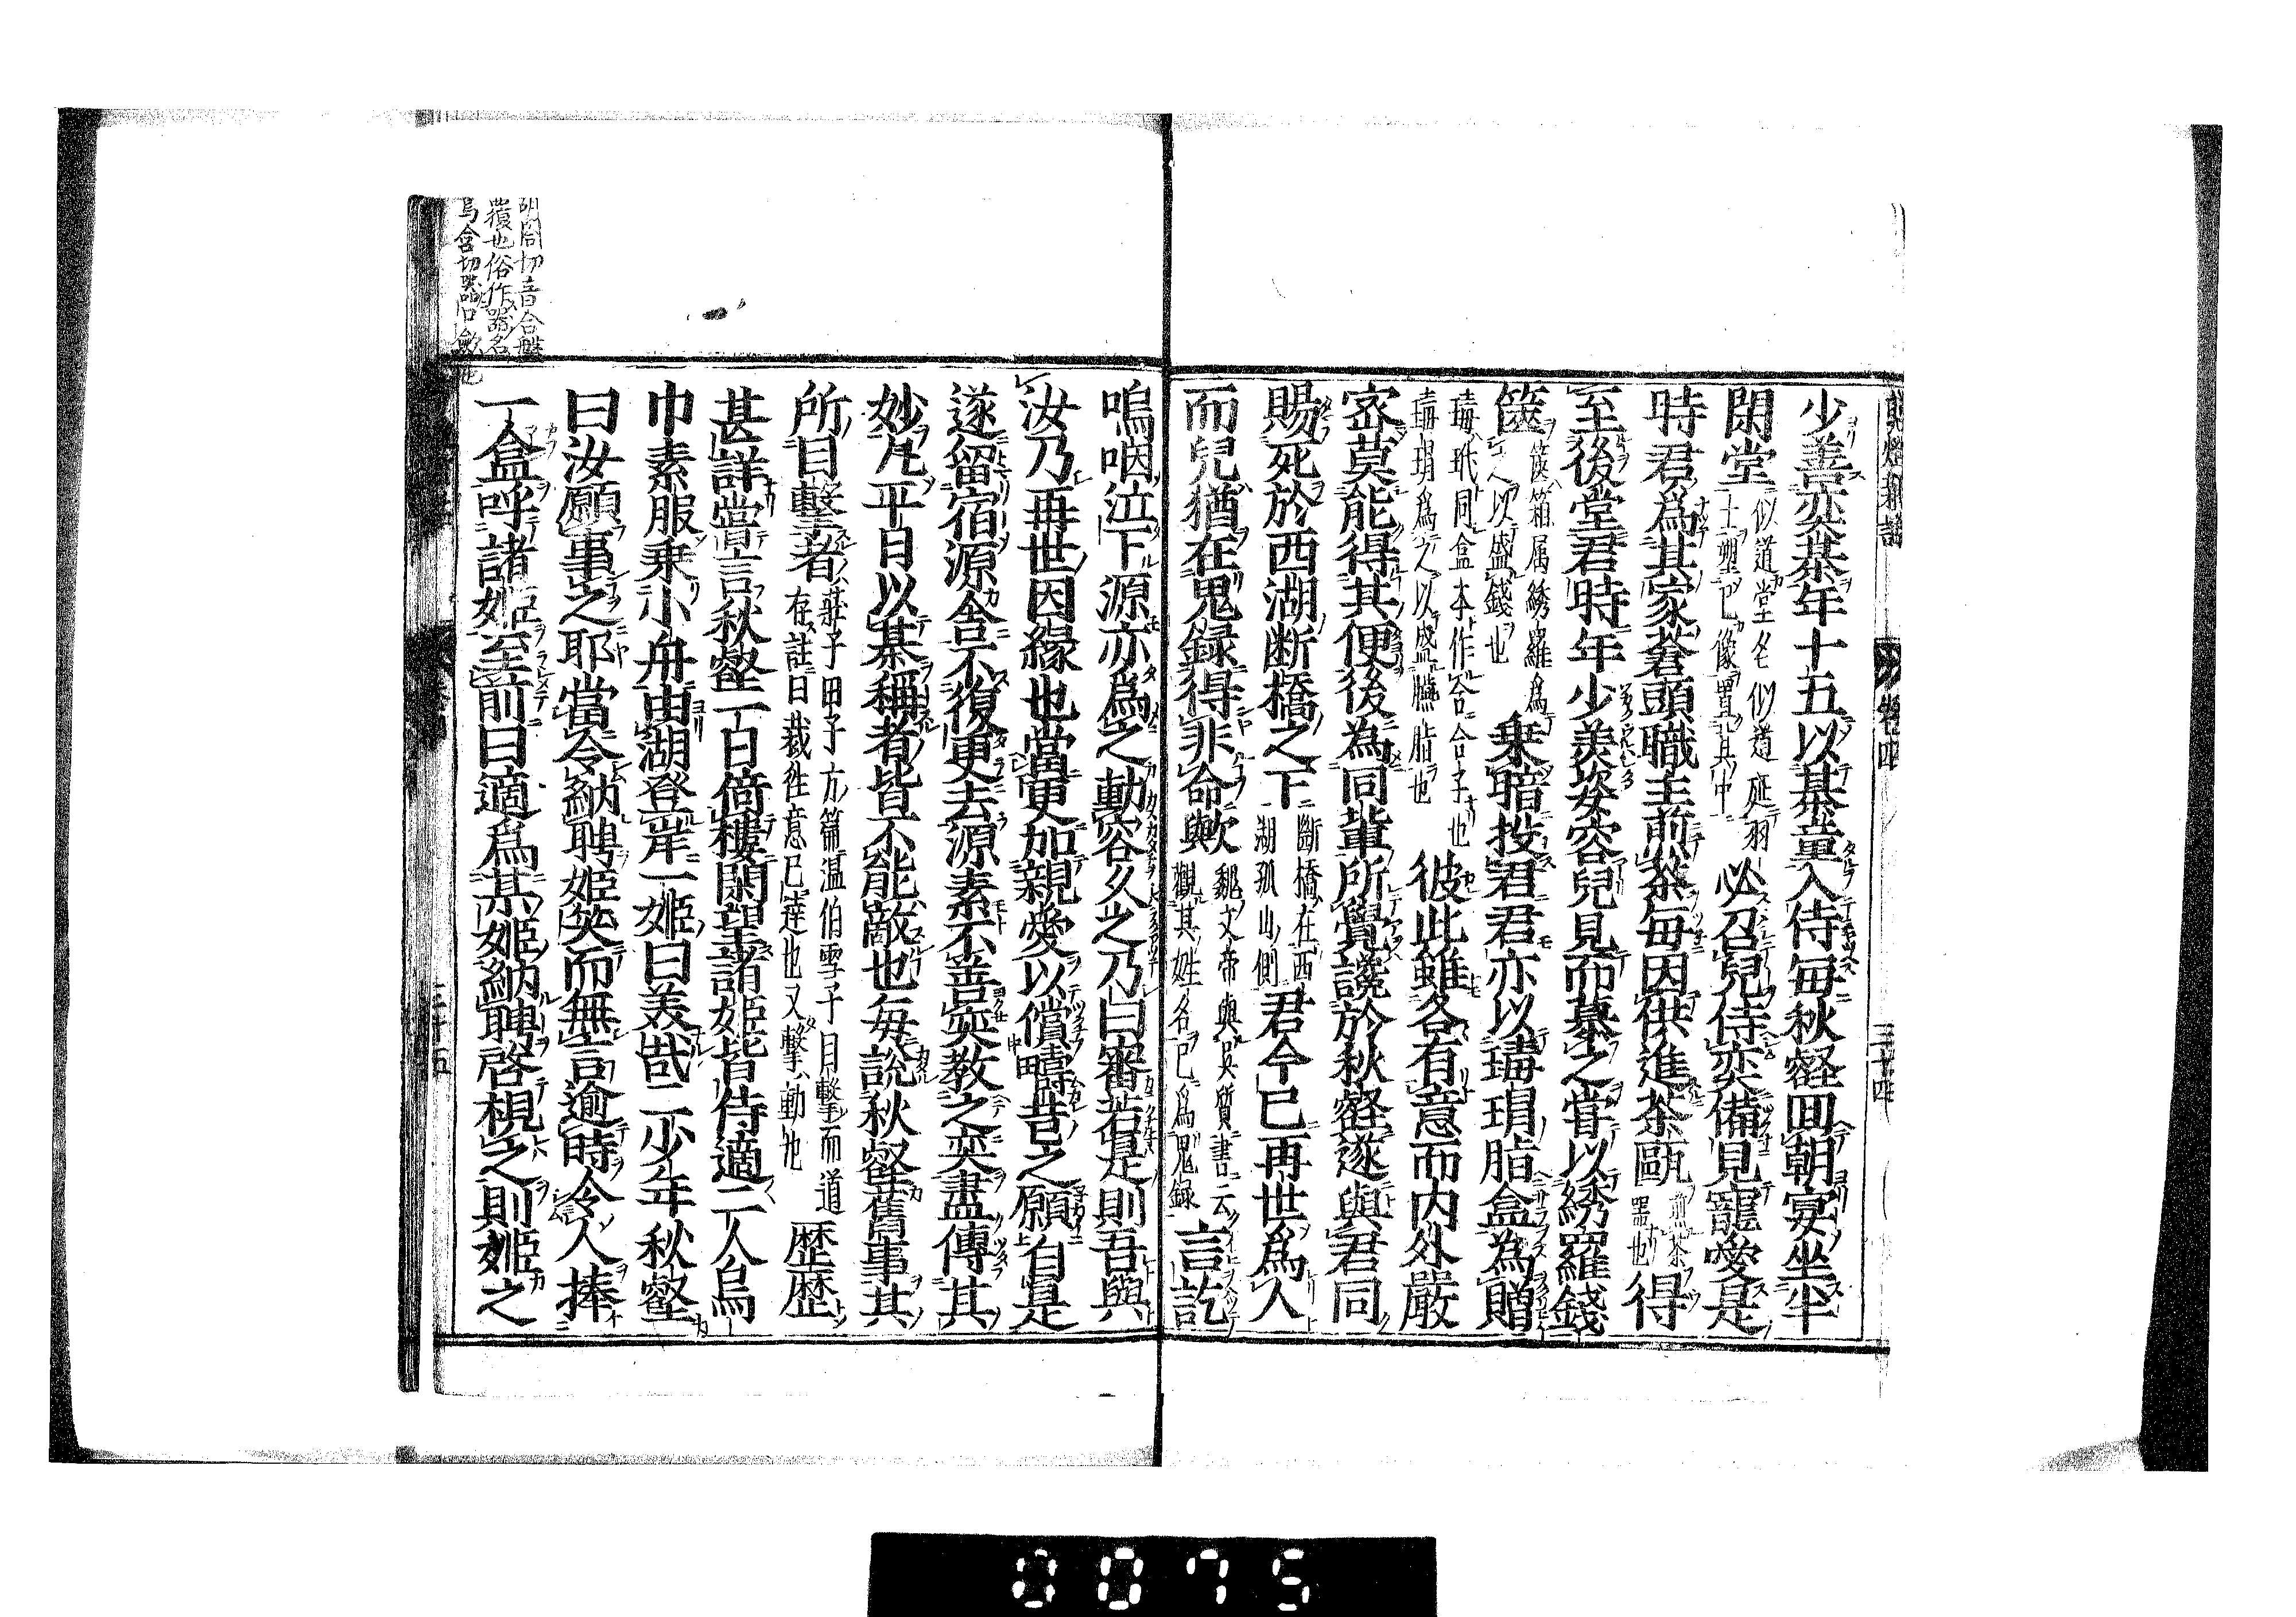 少善奕棊年十五以棊童入侍毎秋壑囬朝宴坐半
閑堂似道堂名似道延羽士塑已像置其中必召兒侍奕備見寵愛是
時君爲其家蒼頭職主煎茶毎因供進茶甌煎茶器也得
至後堂君時年少羙姿容兒見而慕之甞以綉羅錢
篋篋箱属綉羅爲之以盛錢也乗暗投君君亦以瑇瑁脂盒為贈
瑇玳同盒本作合合子也瑇瑁爲之以盛臙脂也彼此雖各有意而内外嚴
宻莫能得其便後為同軰所覺讒於秋壑遂與君同
賜死於西湖断橋之下斷橋在西湖孤山側君今已再世爲人
而兒猶在鬼録得非命歟魏文帝與吳質書云觀其姓名已爲鬼録言訖
嗚咽泣下源亦爲之動容久之乃曰審若是則吾與
汝乃再世因緣也當更加親愛以償疇昔之願自是
遂留宿源舎不復更去源素不善奕教之奕盡傳其
妙凢平日以棊稱者皆不能敵也毎説秋壑舊事其
所目擊者莊子田子方篇温伯雪子目擊而道存註曰裁徃意已達也又擊動也歴歴
甚詳嘗言秋壑一日倚樓閑望諸姬皆侍適二人烏
巾素服乗小舟由湖登岸一姬曰美哉二少年秋壑
曰汝願事之耶當令納聘姬笑而無言逾時令人捧
一盒呼諸姬至前曰適爲某姬納聘啓視之則姬之